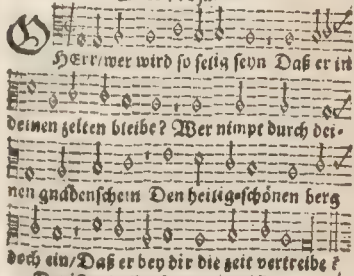 O
HErr/wer wird so selig seyn Daß er in
deinen zelten bleibe? Wer nimpt durch dei-
nen gnadenschein Den heiligeschönen berg
doch ein/Daß er bey dir die zeit vertreibe?